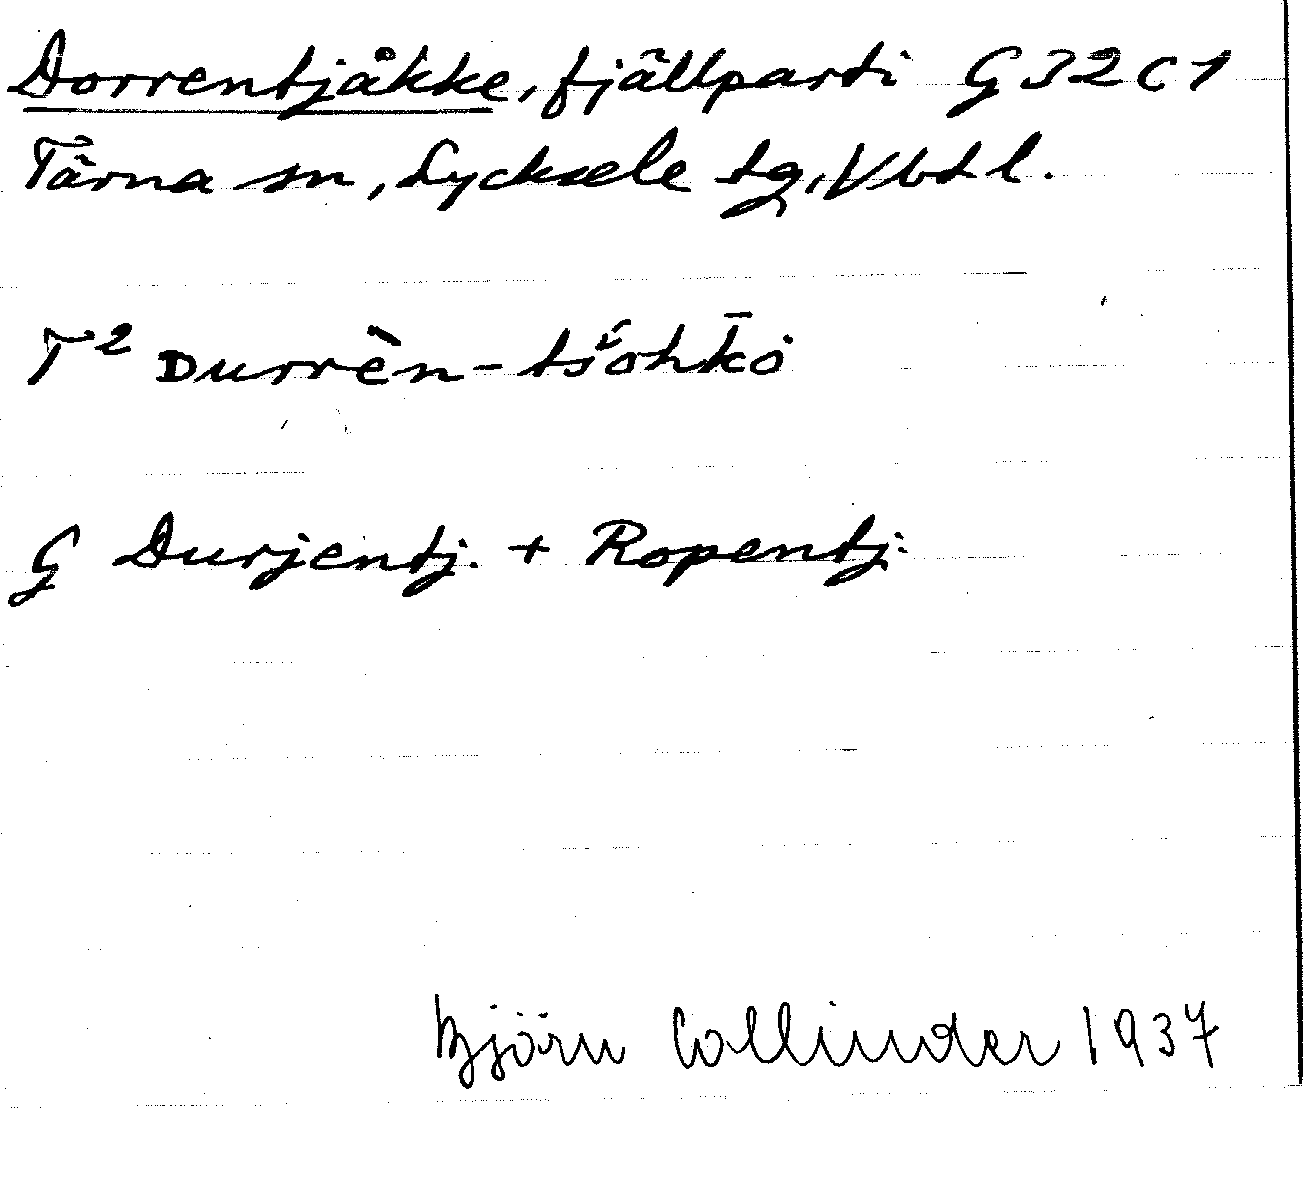 Dorrentjåkke, fjällparti G 32 C 1
Tärna sn, Lycksele lg, Vbtl.
T² Durrèn-tśohk̄ȯ
G Durjentj. + Ropentj.
Björn Collinder 1937